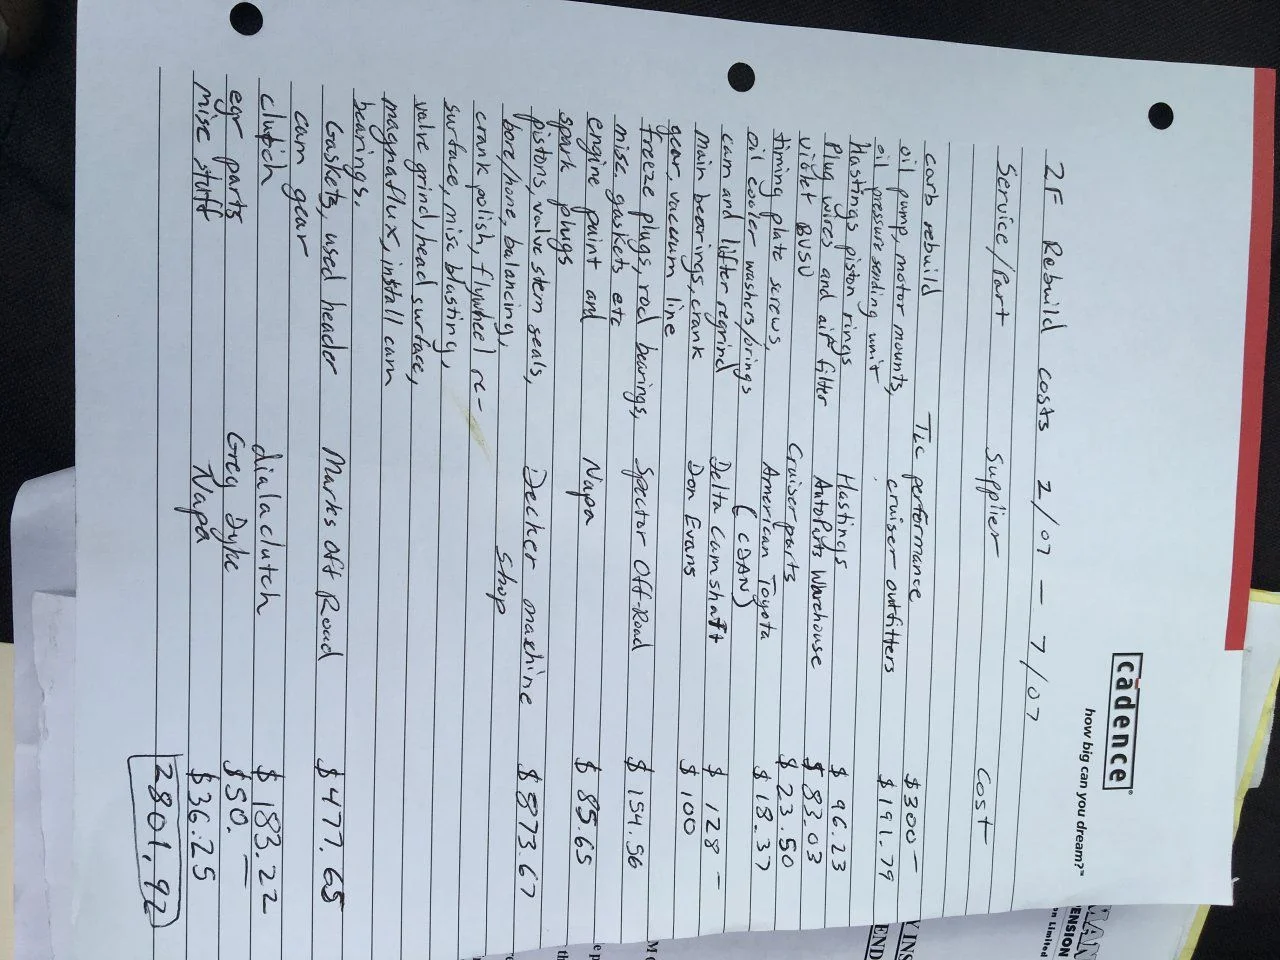 cadence
how big can you dream?™
2F Rebuild costs 2/07 – 7/07
Service/Part Supplier Cost
carb rebuild TLC performance $300–
oil pump, motor mounts, cruiser outfitters $191.79
oil pressure sending unit
Hastings piston rings Hastings $96.23
Plug wires and air filter AutoParts Warehouse $83.03
violet BVSV Cruiserparts $23.50
timing plate screws, American Toyota $18.37
oil cooler washers/orings (CDAN)
cam and lifter regrind Delta Camshaft $128–
main bearings, crank Don Evans $100
gear, vacuum line
freeze plugs, rod bearings, Spector Off-Road $154.56
misc. gaskets etc
engine paint and Napa $85.65
spark plugs
pistons, valve stem seals, Decker machine $873.67
bore/hone, balancing, shop
crank polish, flywheel re-
surface, misc blasting,
valve grind, head surface,
magnaflux, install cam
bearings.
Gaskets, used header Marks Off Road $477.65
cam gear
clutch dialaclutch $183.22
egr parts Greg Dyke $50.–
misc stuff Napa $36.25
2801.92
MAN
ENSION
on Limited
V INS
END